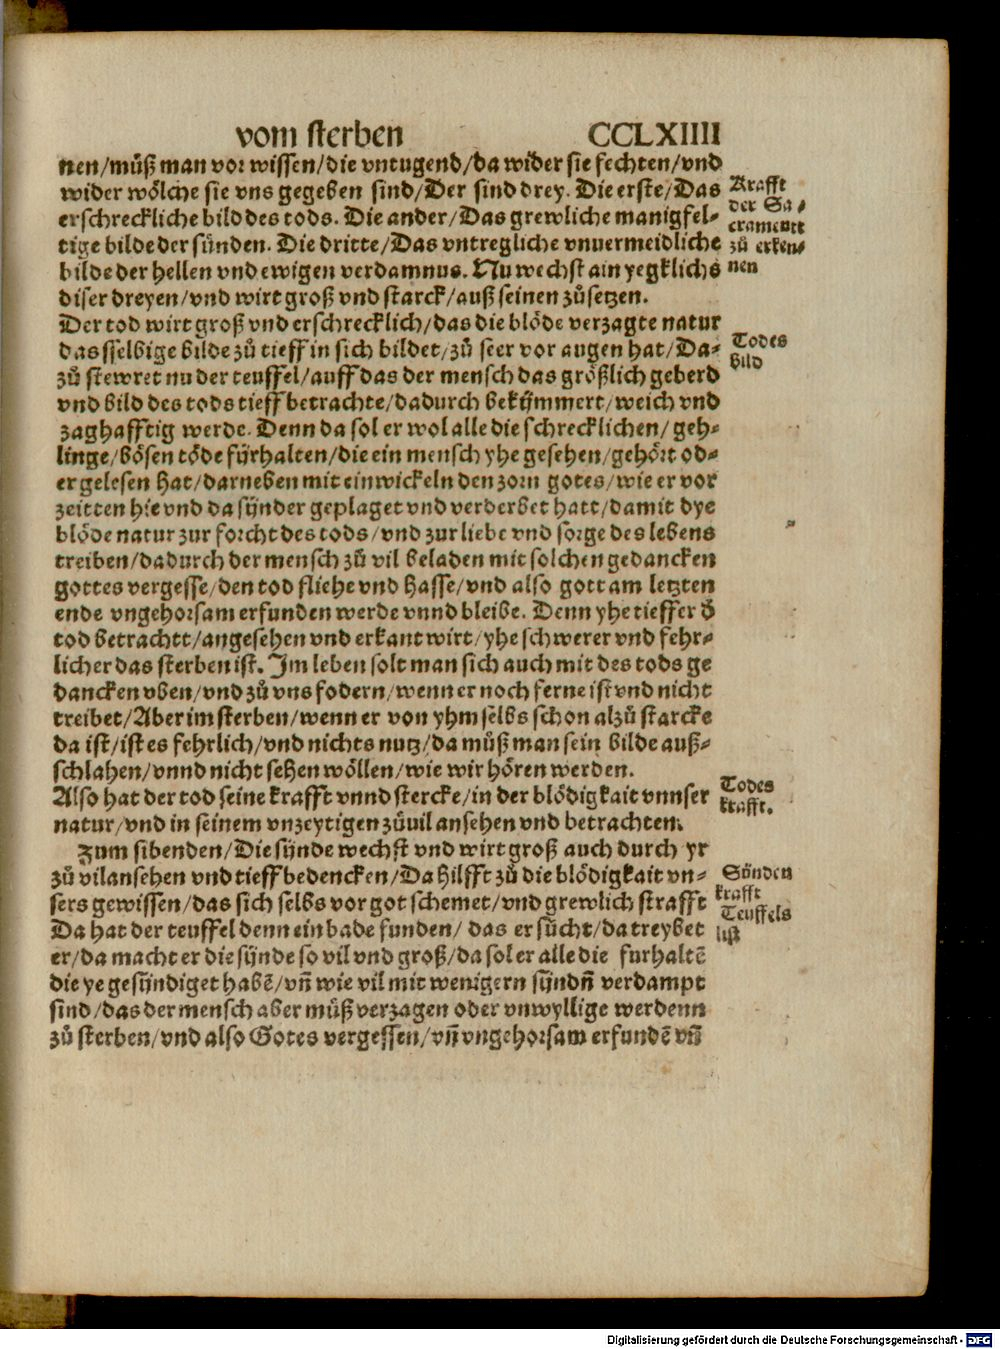 vom sterben CCLXIIII
nen/můß man vor wissen/die vntugend/da wider sie fechten/vnd
wider wölche sie vns gegeben sind/Der sind drey. Die erste/Das
erschreckliche bild des tods. Die ander/Das grewliche manigfel-
tige bilde der sünden. Die dritte/Das vntregliche vnuermeidliche
bilde der hellen vnd ewigen verdamnus. Nu wechst ain yegklichs
diser dreyen/vnd wirt groß vnd starck/auß seinen zůsetzen.
Krafft
der Sa-
cramentt
zů erken-
nen
Der tod wirt groß vnd erschrecklich/das die blöde verzagte natur
dasselbige bilde zů tieff in sich bildet/zů seer vor augen hat/Da-
zů stewret nu der teuffel/auff das der mensch das größlich geberd
vnd bild des tods tieff betrachte/dadurch bekümmert/weich vnd
zaghafftig werde. Denn da sol er wol alle die schrecklichen/geh-
linge/bösen töde fürhalten/die ein mensch yhe gesehen/gehört od-
er gelesen hat/darneben mit einwickeln den zorn gotes/wie er vor
zeitten hie vnd da sünder geplaget vnd verderbet hatt/damit dye
blöde natur zur forcht des tods/vnd zur liebe vnd sorge des lebens
treiben/dadurch der mensch zů vil beladen mit solchen gedancken
gottes vergesse/den tod fliehe vnd hasse/vnd also gott am letzten
ende vngehorsam erfunden werde vnnd bleibe. Denn yhe tieffer d̕
tod betrachtt/angesehen vnd erkant wirt/yhe schwerer vnd fehr-
licher das sterben ist. Im leben solt man sich auch mit des tods ge
dancken vben/vnd zů vns fodern/wenn er noch ferne ist vnd nicht
treibet/Aber im sterben/wenn er von yhm selbs schon alzů starcke
da ist/ist es fehrlich/vnd nichts nutz/da můß man sein bilde auß-
schlahen/vnnd nicht sehen wöllen/wie wir hören werden.
Todes
bild
Also hat der tod seine krafft vnnd stercke/in der blödigkait vnnser
natur/vnd in seinem vnzeytigen zůuil ansehen vnd betrachten.
Todes
krafft.
Zum sibenden/Die sünde wechst vnd wirt groß auch durch yr
zů vil ansehen vnd tieff bedencken/Da hilfft zů die blödigkait vn-
sers gewissen/das sich selbs vor got schemet/vnd grewlich strafft
Da hat der teuffel denn ein bade funden/ das er sůcht/da treybet
er/da macht er die sünde so vil vnd groß/da sol er alle die furhaltē
die ye gesündiget habē/vn̄ wie vil mit wenigern sündn̄ verdampt
sind/das der mensch aber můß verzagen oder vnwyllige werdenn
zů sterben/vnd also Gotes vergessen/vn̄ vngehorsam erfundē vn̄
Sünden
krafft
Teuffels
list
Digitalisierung gefördert durch die Deutsche Forschungsgemeinschaft - DFG